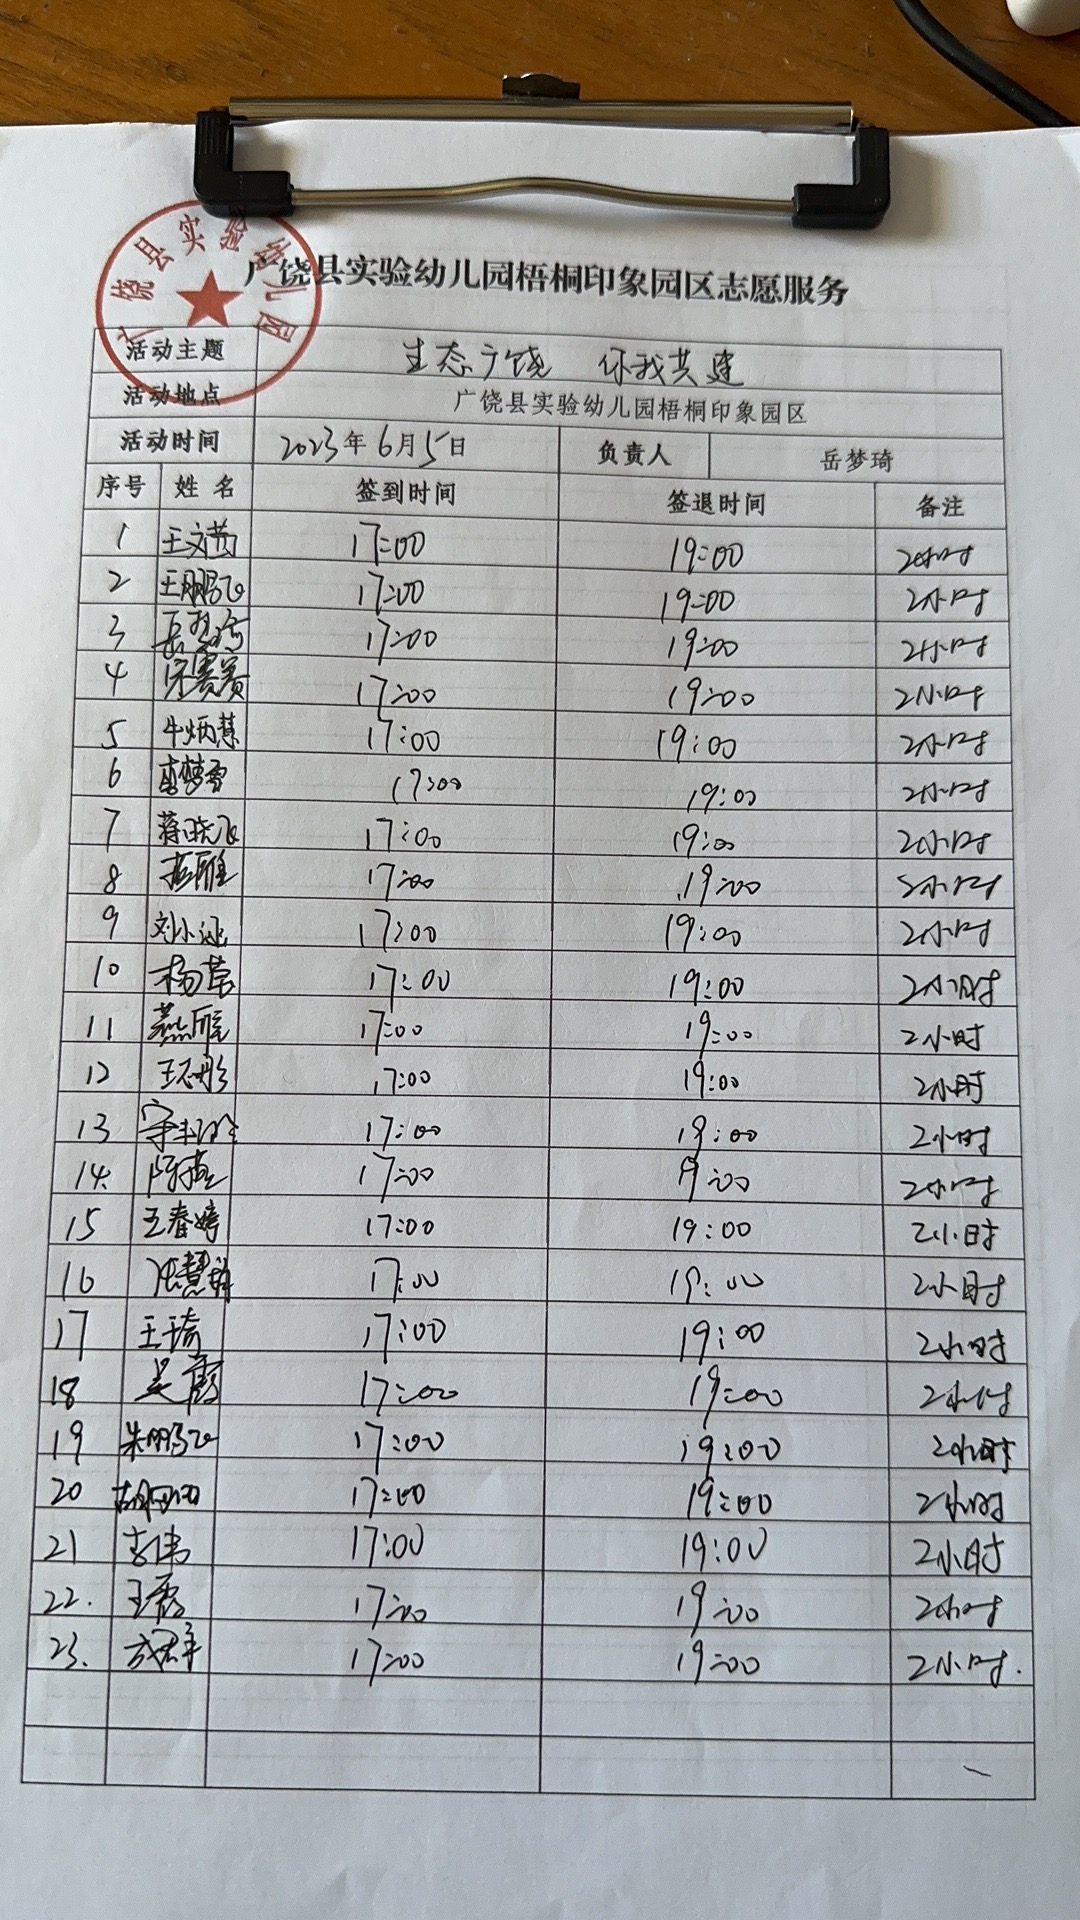 广饶县实验幼儿园
广饶县实验幼儿园梧桐印象园区志愿服务
活动主题 生态广饶 你我共建
活动地点 广饶县实验幼儿园梧桐印象园区
活动时间 2023年6月5日 负责人 岳梦琦
序号 姓名 签到时间 签退时间 备注
1 王文茜 17:00 19:00 2小时
2 王鹏飞 17:00 19:00 2小时
3 岳梦琦 17:00 19:00 2小时
4 宋赛赛 17:00 19:00 2小时
5 牛炳慧 17:00 19:00 2小时
6 李梦雪 17:00 19:00 2小时
7 蒋晓飞 17:00 19:00 2小时
8 17:00 19:00 2小时
9 刘小 17:00 19:00 2小时
10 杨 17:00 19:00 2小时
11 燕雁 17:00 19:00 2小时
12 王 彤 17:00 19:00 2小时
13 17:00 19:00 2小时
14. 17:00 19:00 2小时
15 王春婷 17:00 19:00 2小时
16 张慧 17:00 19:00 2小时
17 王琦 17:00 19:00 2小时
18 吴霞 17:00 19:00 2小时
19 朱鹏飞 17:00 19:00 2小时
20 17:00 19:00 2小时
21 李伟 17:00 19:00 2小时
22. 王 17:00 19:00 2小时
23. 成 17:00 19:00 2小时.